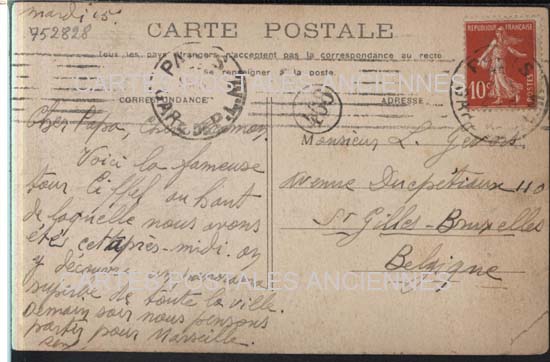 mardi 15.
752828
CARTE POSTALE
Tous les pays étrangers n'acceptent pas la correspondance au recto
se renseigner à la poste.
CARTES POSTALES ANCIENNES
CORRESPONDANCE
ADRESSE
REPUBLIQUE FRANÇAISE
10
400
Cher Papa, Chère
Voici la fameuse
tour Eiffel au haut
de laquelle nous avons
été cet après-midi. on
y découvre un
superbe de toute la ville.
Demain soir nous pensons
partir pour Marseille.
Monsieur L.
Avenue Ducpétiaux 110
St Gilles-Bruxelles
Belgique
CARTES POSTALES ANCIENNES